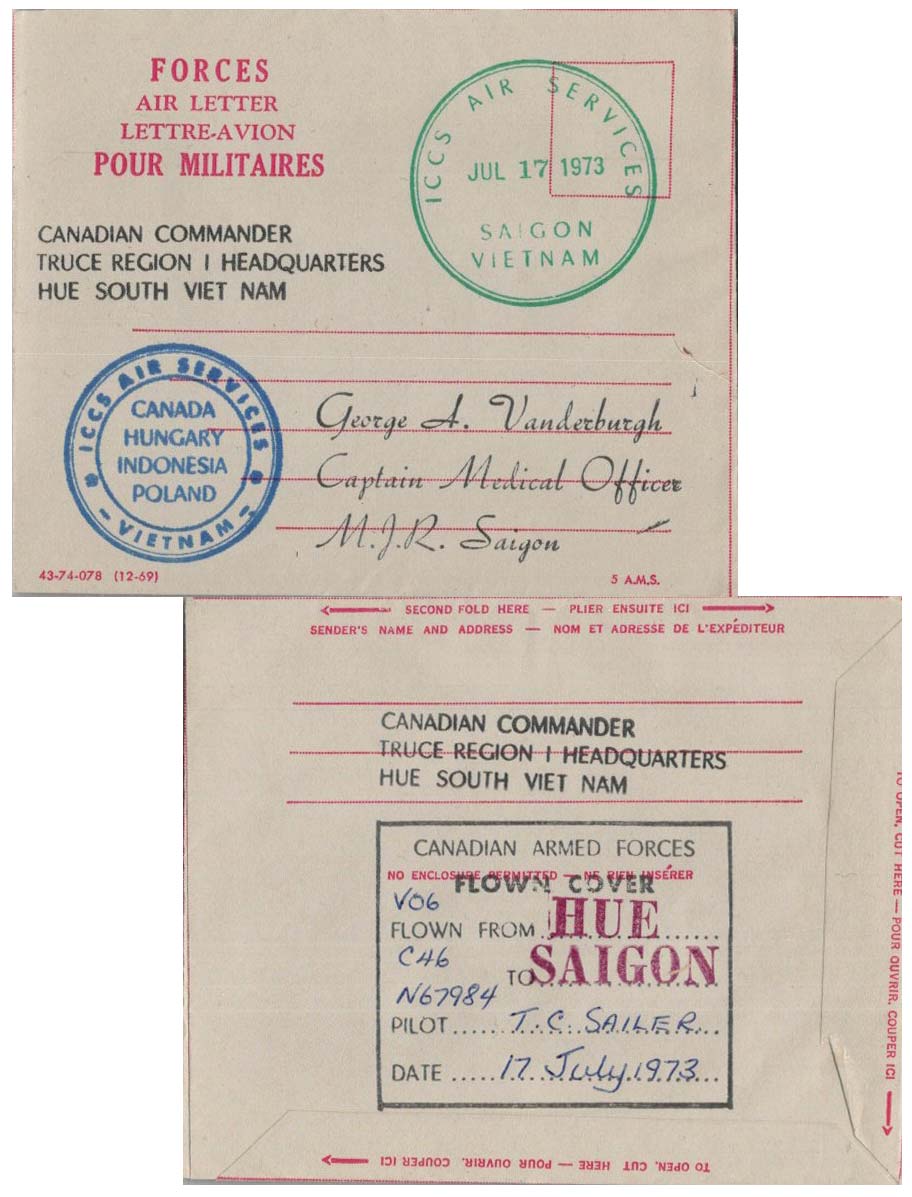 FORCES
AIR LETTER
LETTRE-AVION
POUR MILITAIRES
ICCS AIR SERVICES
JUL 17 1973
SAIGON
VIETNAM
CANADIAN COMMANDER
TRUCE REGION I HEADQUARTERS
HUE SOUTH VIET NAM
ICCS AIR SERVICES
CANADA
HUNGARY
INDONESIA
POLAND
- VIETNAM -
George A. Vanderburgh
Captain Medical Officer
M.J.R. Saigon
43-74-078 (12-69)
5 A.M.S.
SECOND FOLD HERE — PLIER ENSUITE ICI
SENDER'S NAME AND ADDRESS — NOM ET ADRESSE DE L'EXPÉDITEUR
CANADIAN COMMANDER
TRUCE REGION I HEADQUARTERS
HUE SOUTH VIET NAM
CANADIAN ARMED FORCES
NO ENCLOSURE PERMITTED — NE RIEN INSÉRER
FLOWN COVER
V06
FLOWN FROM HUE
C46
TO SAIGON
N67984
PILOT..... T.C. SAILER...
DATE ..... 17 July 1973...
TO OPEN, CUT HERE — POUR OUVRIR, COUPER ICI
TO OPEN, CUT HERE — POUR OUVRIR, COUPER ICI